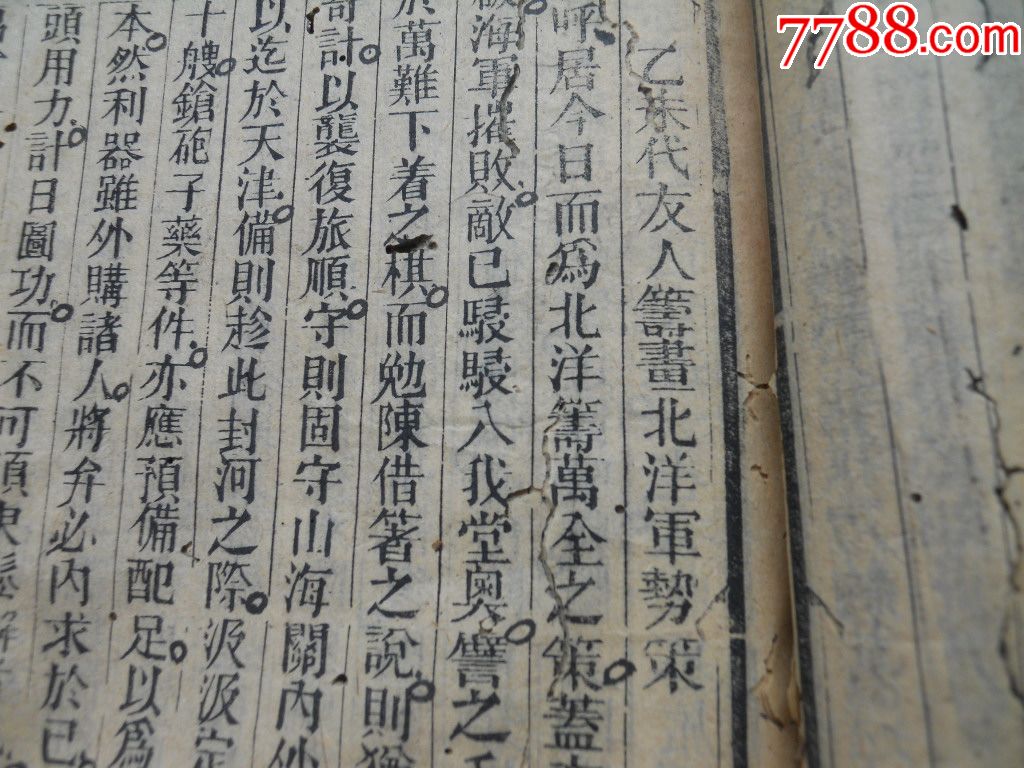 7788.com
乙未代友人籌畫北洋軍勢策
呼居今日而爲北洋籌萬全之策蓋
海軍摧敗敵已駸駸入我堂奧譬之
於萬難下着之棋而勉陳借箸之說則
奇計以襲復旅順守則固守山海關內外
以迄於天津備則趁此封河之際汲汲定
十艘鎗砲子藥等件亦應預備配足以爲
本然利器雖外購諸人將弁必內求於己
頭用力計日圖功而不可